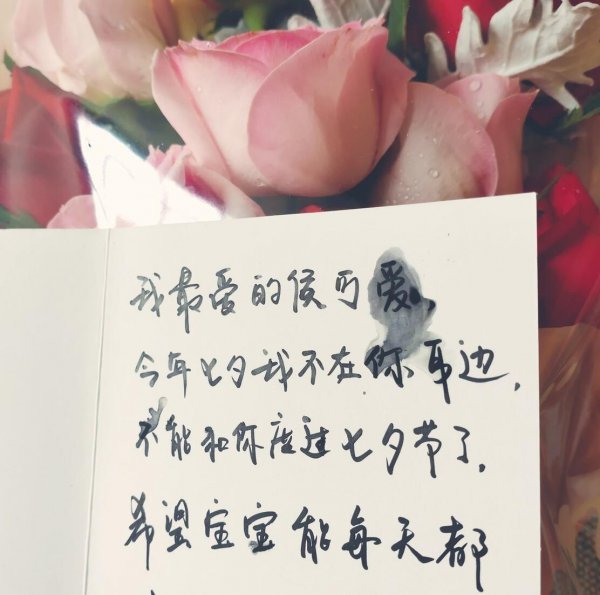 我最爱的侯可爱，
今年七夕我不在你身边，
不能和你度过七夕节了，
希望宝宝能每天都